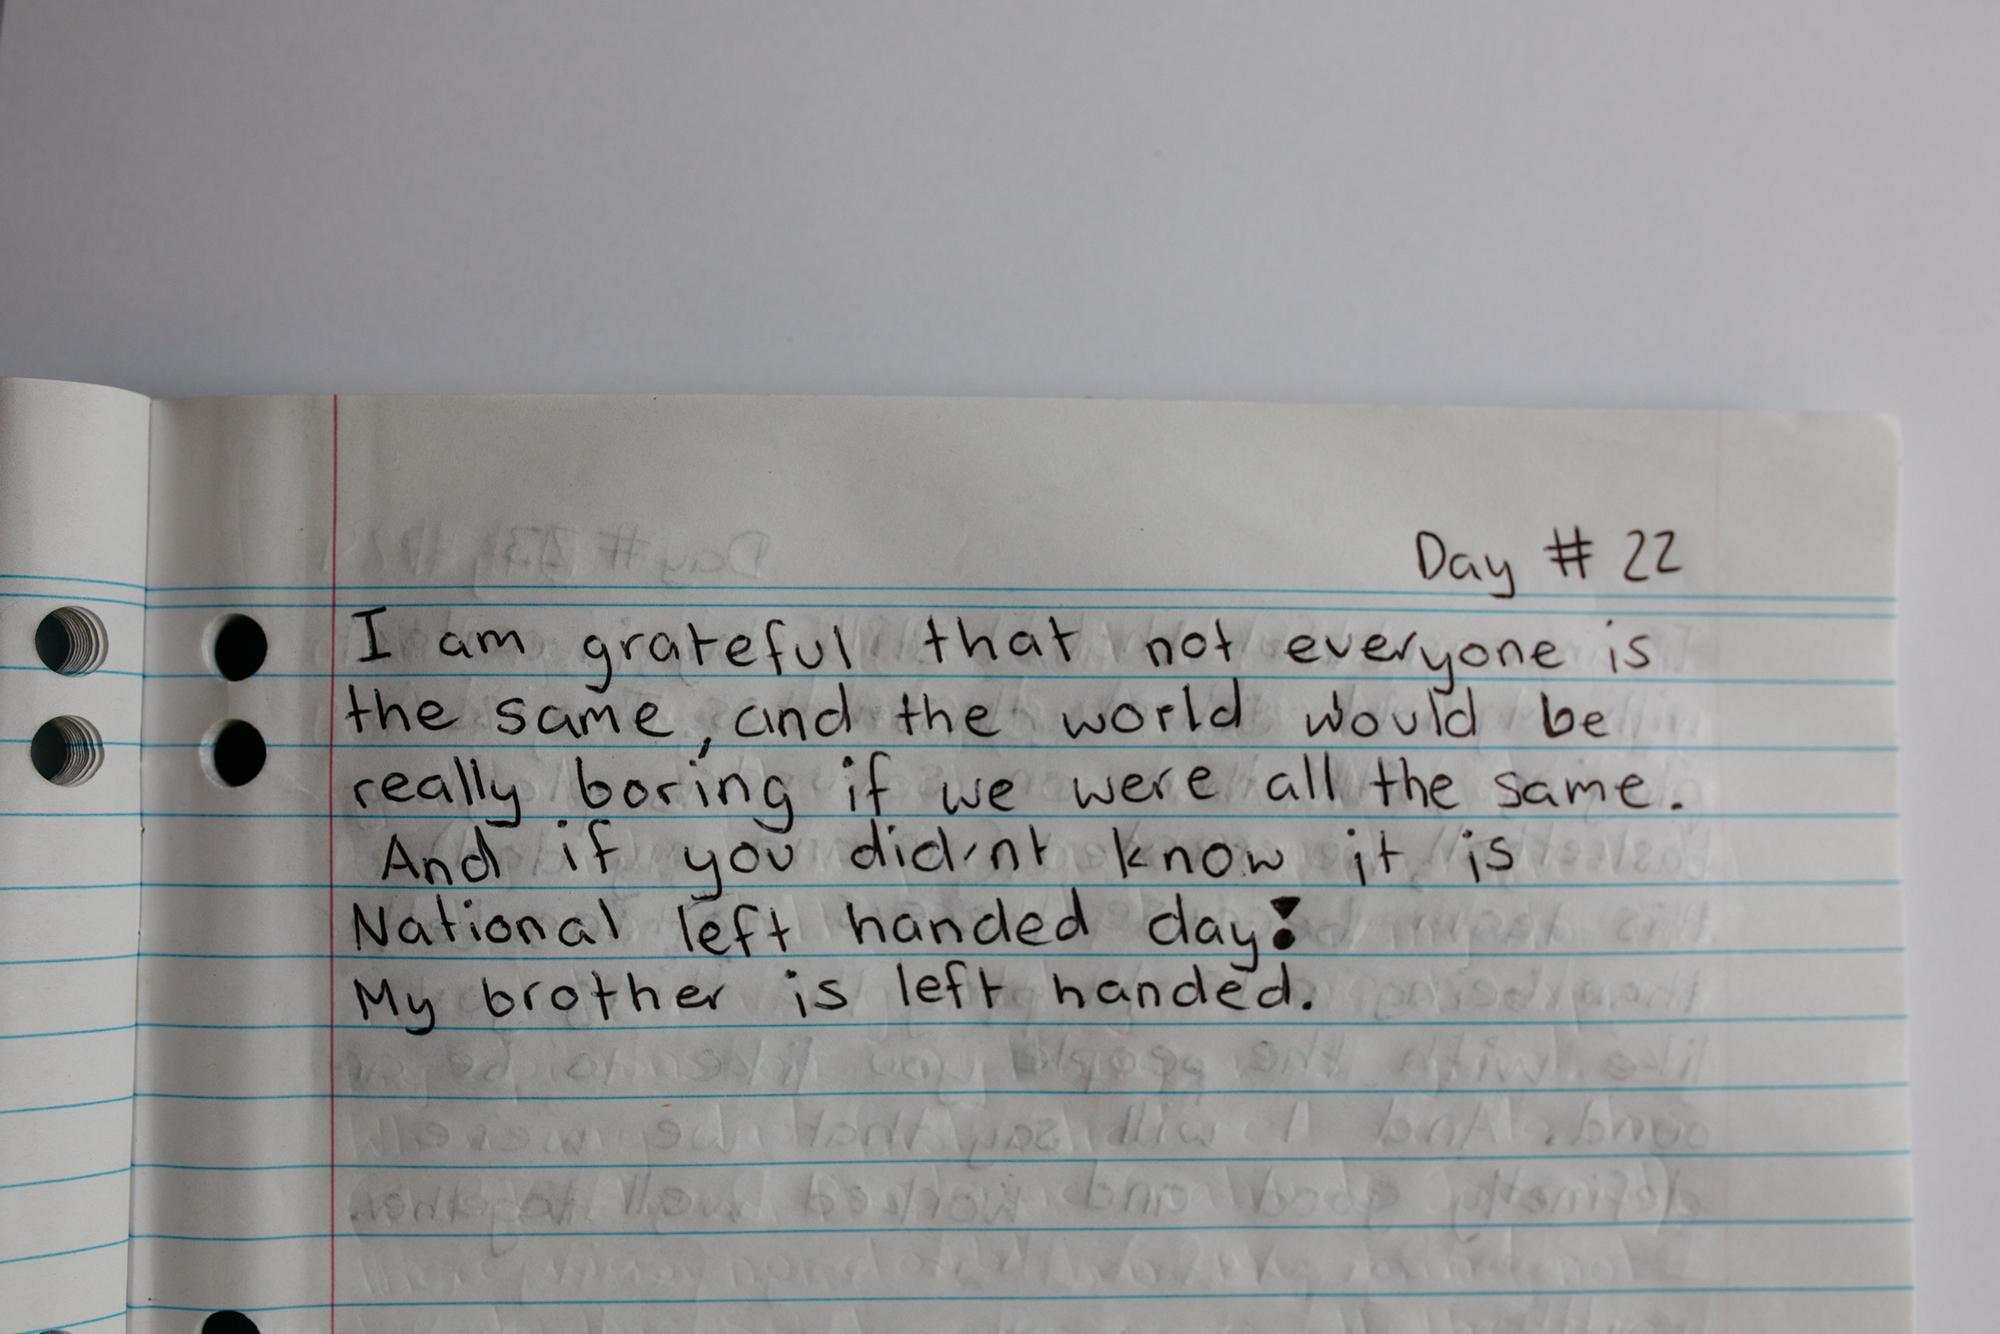 Day # 22
I am grateful that not everyone is
the same, and the world would be
really boring if we were all the same.
And if you did'nt know it is
National left handed day!
My brother is left handed.